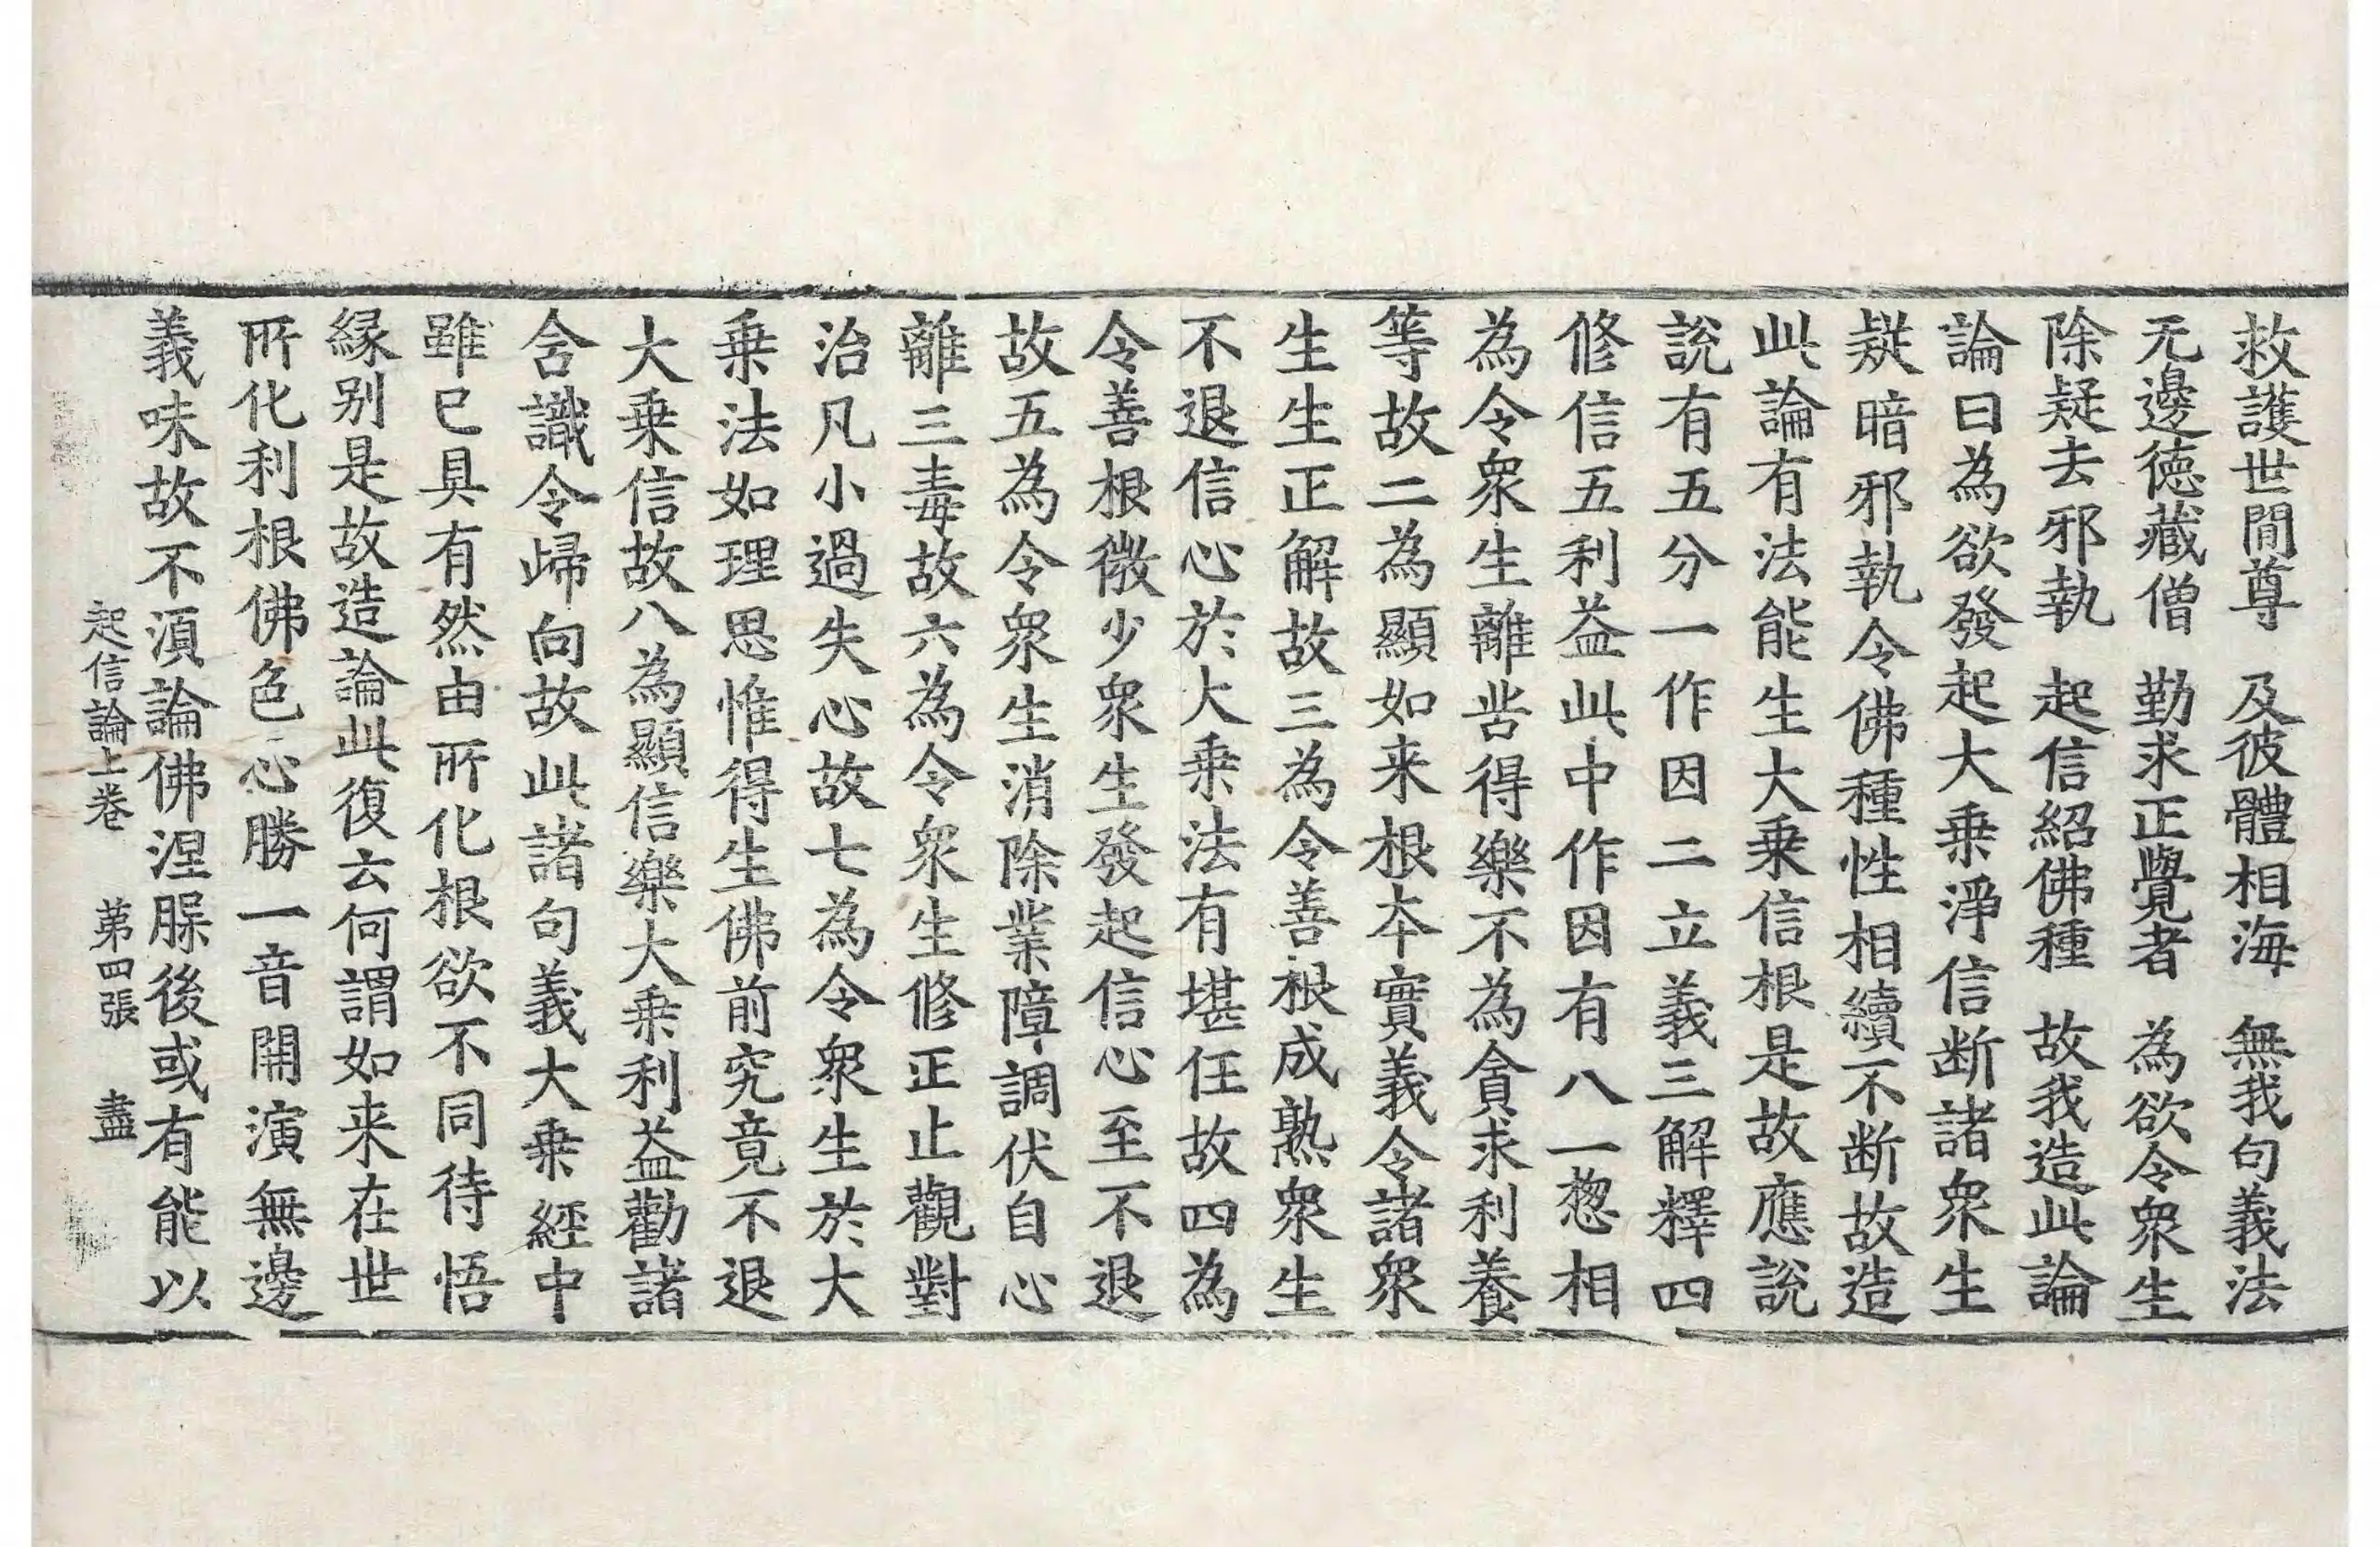 救護世間尊　及彼體相海　無我句義法
无邊德藏僧　勤求正覺者　為欲令衆生
除疑去邪執　起信紹佛種　故我造此論
論曰為欲發起大乗淨信断諸衆生
疑暗邪執令佛種性相續不断故造
此論有法能生大乗信根是故應說
說有五分一作因二立義三解釋四
修信五利益此中作因有八一惣相
為令衆生離苦得樂不為貪求利養
等故二為顯如来根本實義令諸衆
生生正解故三為令善根成熟衆生
不退信心於大乗法有堪任故四為
令善根微少衆生發起信心至不退
故五為令衆生消除業障調伏自心
離三毒故六為令衆生修正止觀對
治凡小過失心故七為令衆生於大
乗法如理思惟得生佛前究竟不退
大乗信故八為顯信樂大乗利益勸諸
含識令歸向故此諸句義大乗經中
雖已具有然由所化根欲不同待悟
緣别是故造論此復云何謂如来在世
所化利根佛色心勝一音開演無邊
義味故不須論佛涅槃後或有能以
起信論上卷　第四張　盡